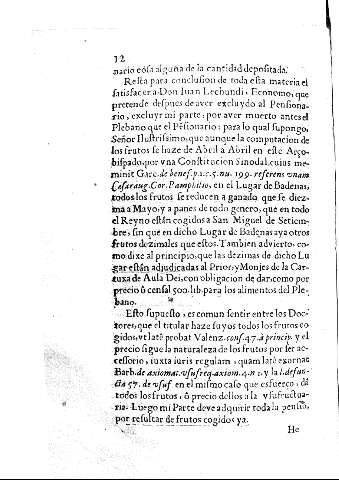 12
nario cosa alguna de la cantidad depositada.
Resta para conclusion de toda esta materia el
satisfacer a Don Iuan Lechundi, Economo, que
pretende despues de aver excluydo al Pensiona-
rio, excluyr mi parte; por aver muerto antes el
Plebano que el Pēsionario: para lo qual supongo,
Señor Ilustrissimo, que aunque la computacion de
los frutos se haze de Abril a Abril en este Arço-
bispado, por vna Constitucion Sinodal, cuius me-
minit Garc. de benef. p.1.c.5. nu. 199. referens vnam
Cæsaraug. Cor. Pamphilio, en el Lugar de Badenas,
todos los frutos se reducen a ganado que se diez-
ma a Mayo, y a panes de todo genero, que en todo
el Reyno estàn cogidos a San Miguel de Setiem-
bre, sin que en dicho Lugar de Badenas aya otros
frutos dezimales que estos. Tambien advierto, co-
mo dixe al principio, que las dezimas de dicho Lu
gar estàn adjudicadas al Prior, y Monjes de la Car-
tuxa de Aula Dei, con obligacion de dar, como por
precio ò censal 500. lib. para los alimentos del Ple-
bano.
Esto supuesto, es comun sentir entre los Doc-
tores, que el titular haze suyos todos los frutos co
gidos, vt latè probat Valenz. cons. 47. à princip. y el
precio sigue la naturaleza de los frutos por ser ac-
cessorio, iuxta iuris regulam, quam latè exornat
Barb. de axiomat. vsufreq. axiom. 4. n 1. y la l. defun-
cta 57. de vsuf en el mismo caso que esfuerco, dà
todos los frutos, ò precio dellos a la vsufructua-
ria. Luego mi Parte deve adquirir toda la pensiō,
por resultar de frutos cogidos ya.
He